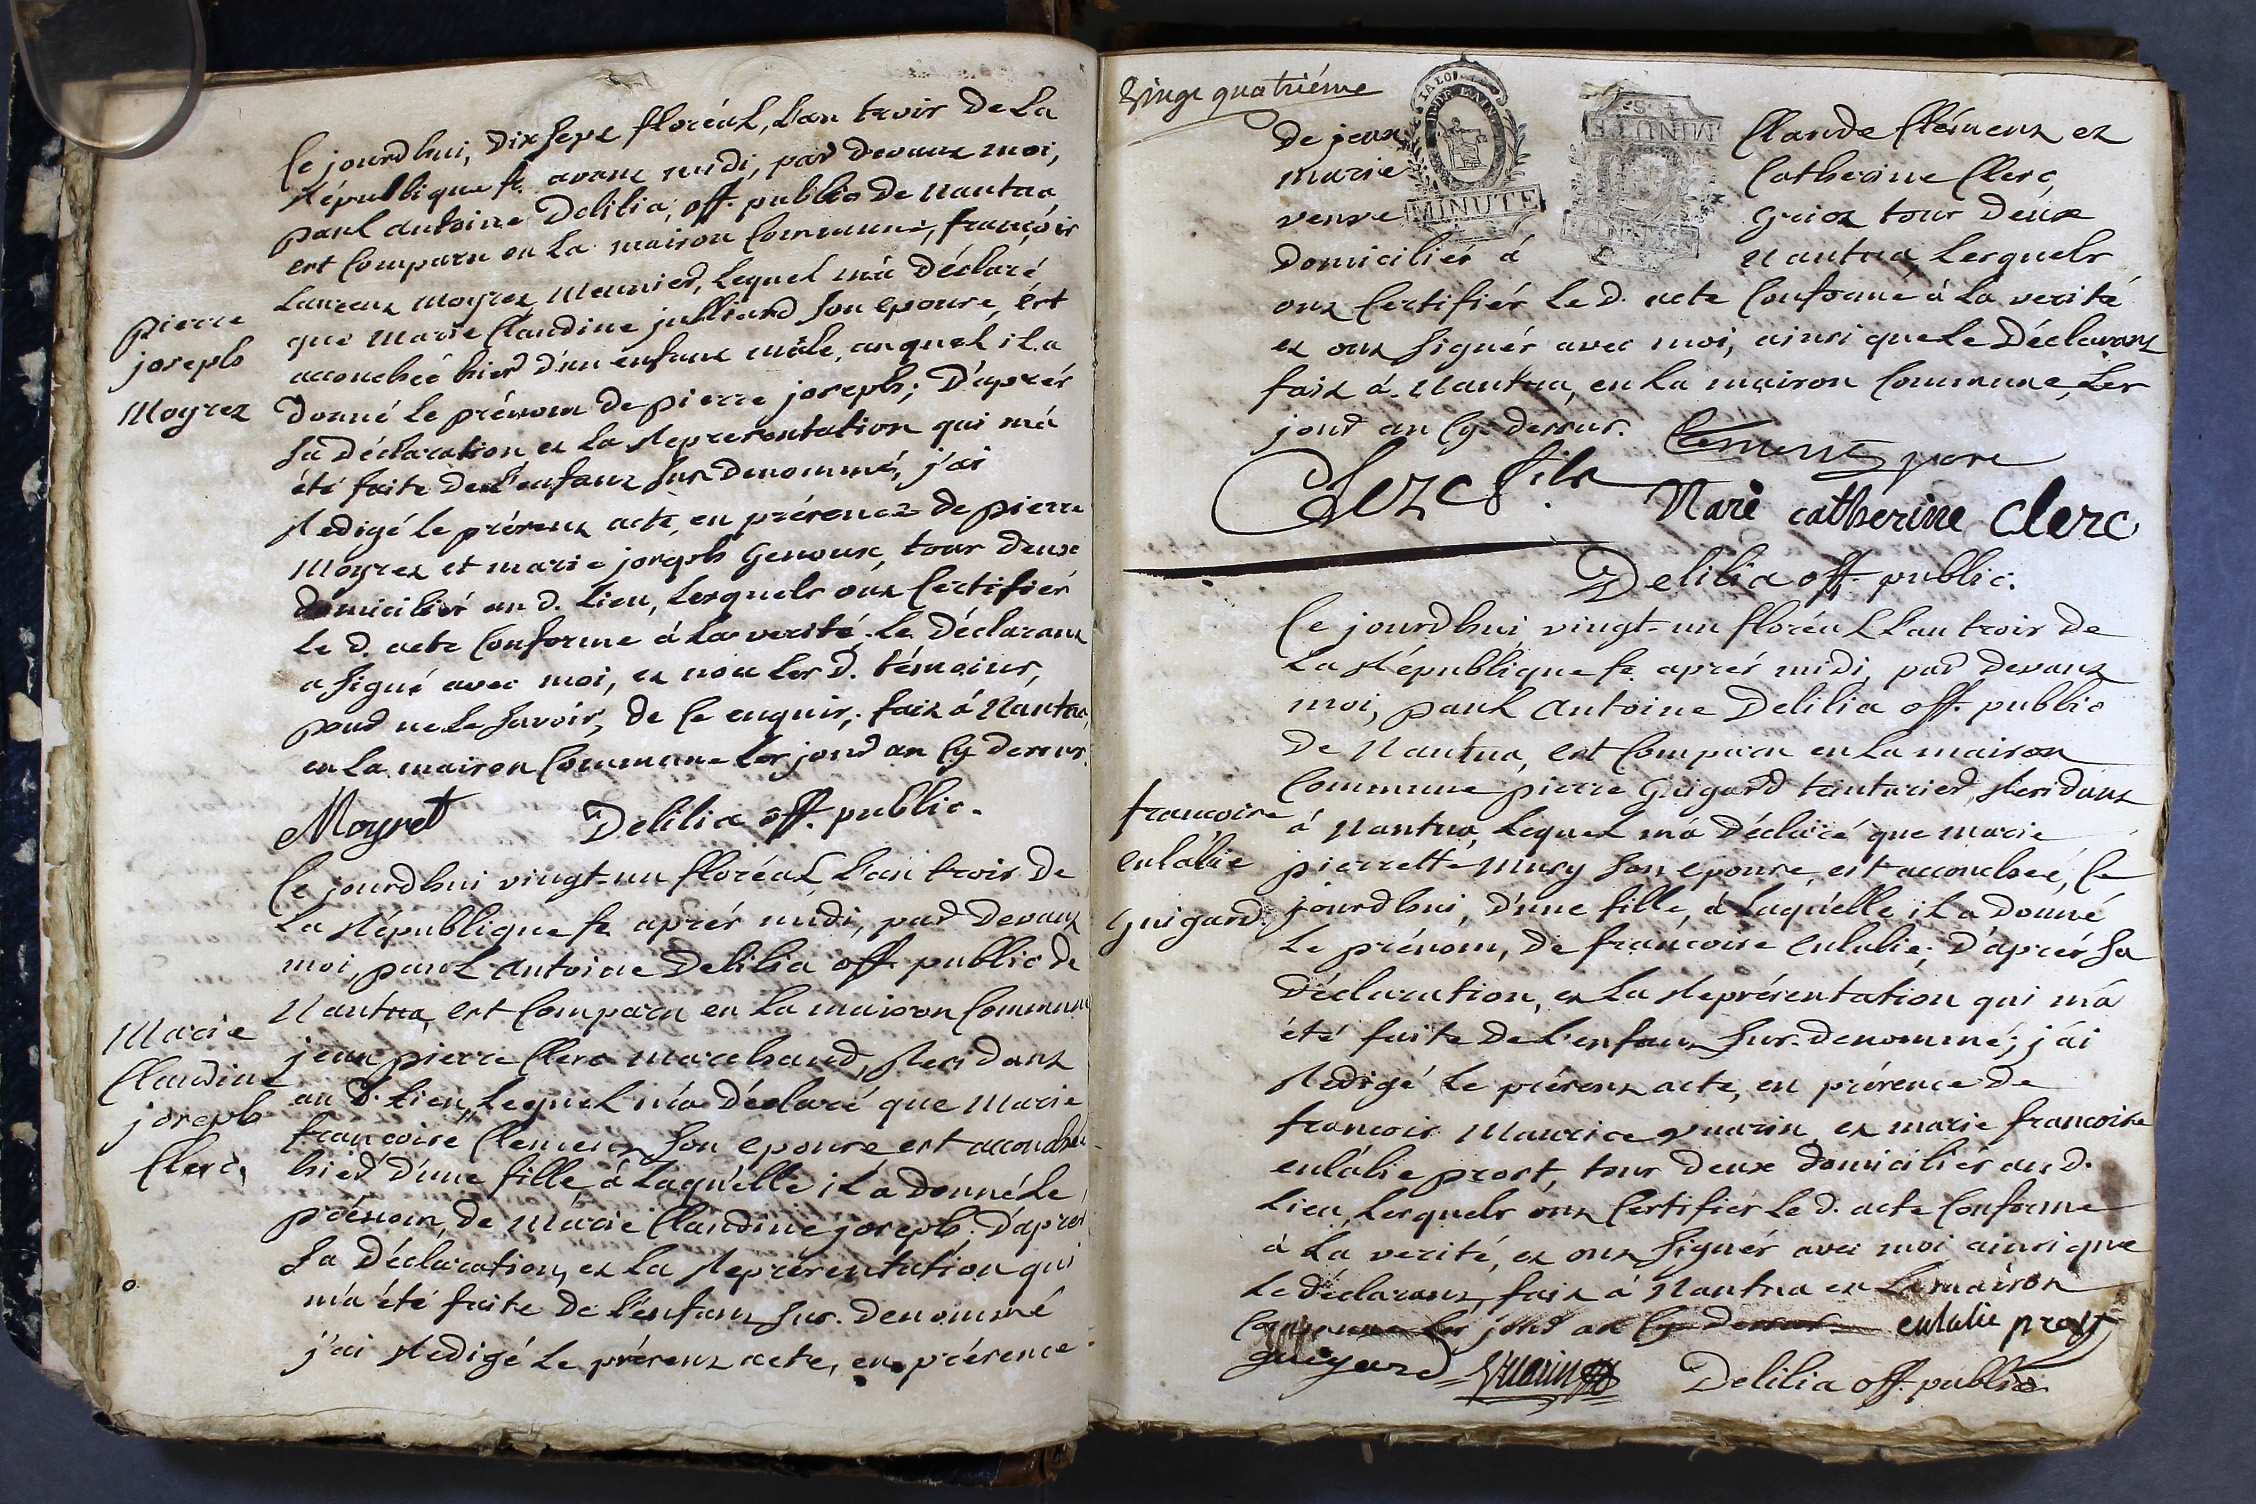 Ce jourdhui, dix sept floréal, L'an trois De La
République fe. avant midi, par Devant moi,
paul antoine Delilia, off. public De Nantua,
est Comparu en La maison Commune, françois
Laurent Moyret Meunier, Lequel m'a Déclaré
que Marie Claudine julliard son epouse, est
accouchée hier d'un enfant mâle, auquel il a
Donné Le prénom De pierre joseph; D'après
sa Déclaration et La Representation qui m'a
été faite De L'enfant sus denommé, j'ai
Redigé Le présent acte, en présence De pierre
Moyret et marie joseph Genoux, tous Deux
domiciliés au d. Lieu, Lesquels ont Certifiés
Le d. acte Conforme á La verité. Le Déclarant
a signé avec moi, et non Les d. témoins,
pour ne Le savoir, de Ce enquis; fait á Nantua,
en La maison Commune Les jour et an Cy Dessus.
pierre
joseph
Moyret
Moyret Delilia off. public.
Ce jourdhui vingt-un floréal L'an trois De
La République fe après midi, par Devant
moi, paul antoine Delilia off. public de
Nantua, est Comparu en La maison Commune
jean pierre Clerc Marchand, Residant
au d. Lieu, Lequel m'a Déclaré que Marie
francoise Clement son epouse est accouchée
hier D'une fille, á Laquelle il a Donné Le
prénom, de Marie Claudine joseph; D'après
sa Déclaration, et La Représentation qui
m'a été faite De L'enfant sus. denommé
j'ai Redigé Le présent acte, en présence
Marie
Claudine
joseph
Clerc,
Vingt quatriéme
MINUTE
MINUTE
De jean Claude Clément et
marie Catherine Clerc
veuve Griot tous Deux
Domiciliés á Nantua, Lesquels
ont Certifiés Le d. acte Conforme á La verité
et ont signés avec moi, ainsi que Le Déclarant
fait á Nantua, en La maison Commune, Les
jour an Cy-Dessus. Clément pere
Clerc fils. Marie catherine Clerc
Delilia off. public.
Ce jourdhui, vingt-un floréal L'an trois De
La République fe après midi, par Devant
moi, paul Antoine Delilia off. public
De Nantua, est Comparu en La maison
Commune pierre Guigard teinturier, Residant
á Nantua, Lequel m'a Déclaré que marie
pierrette Mury son epouse, est accouchée, Ce
jourdhui, D'une fille, á Laquelle il a Donné
Le prénom, De francoise Eulalie; D'après sa
Déclaration, et La Représentation qui m'a
été faite De L'enfant sus-denommé; j'ai
Redigé Le présent acte, en présence De
francois Maurice guarin et marie francoise
eulalie prost, tous Deux Domiciliés au d.
Lieu, Lesquels ont Certifiés Le d. acte Conforme
á La verité, et ont signés avec moi ainsi que
Le déclarant, fait á Nantua en La maison
Commune Les jour an Cy Dessus. eulalie prost
guigard guarin Delilia off. public
francoise
Eulalie
Guigard.